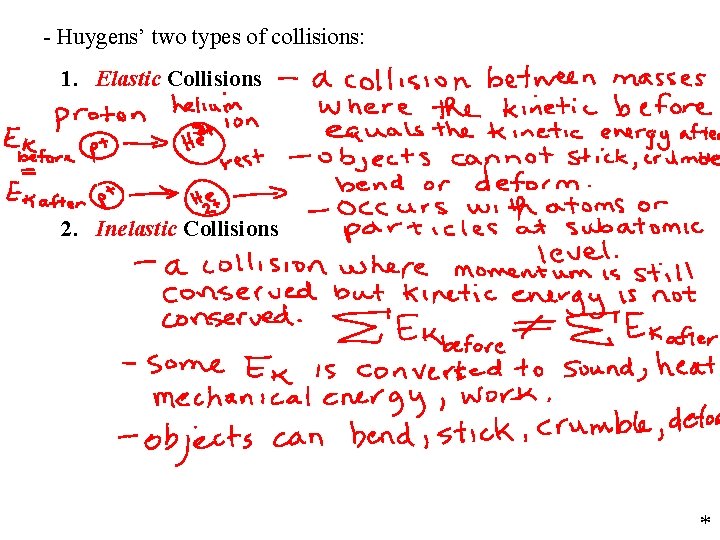 - Huygens' two types of collisions:
1. Elastic Collisions — a collision between masses
where the kinetic before
equals the kinetic energy after
— objects cannot stick, crumble
bend or deform.
— occurs with atoms or
particles at subatomic
level.
proton helium
ion
EK before P+ → He2+ rest
=
EK after P+ → He2+ →
2. Inelastic Collisions
— a collision where momentum is still
conserved but kinetic energy is not
conserved. ΣEK before ≠ ΣEK after
— some EK is converted to sound, heat
mechanical energy, work.
— objects can bend, stick, crumble, defor
*